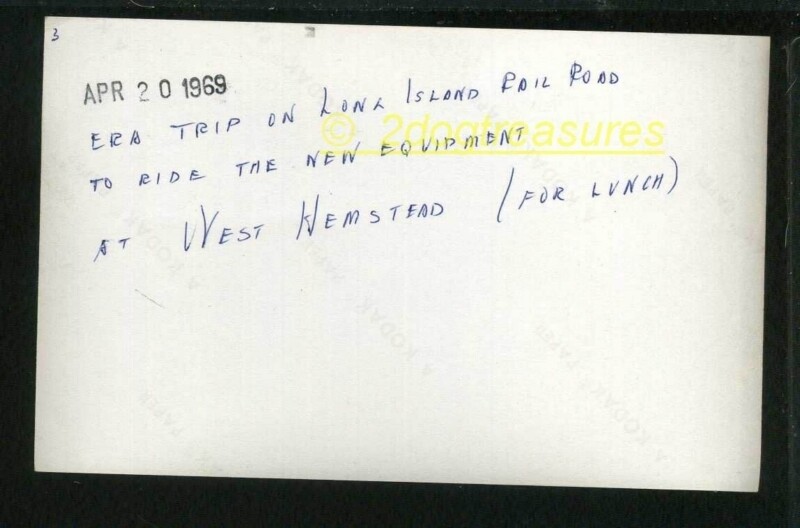 3
APR 20 1969
ERA TRIP ON LONG ISLAND RAIL ROAD
© 2dogtreasures
TO RIDE THE NEW EQUIPMENT
AT WEST HEMSTEAD (FOR LUNCH)
A KODAK PAPER
A KODAK PAPER
A KODAK PAPER